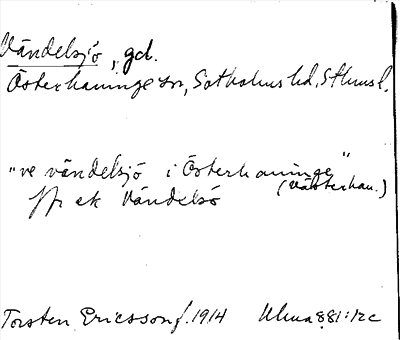 Vändelsjö, gd.
Österhaninge sn, Sotholms hd, Sthms l.
"ve vändelsjö i Österhaninge"
(Västerhan.)
jfr ek Vändelsö
Torsten Ericsson f. 1914 Ulma 881:12c